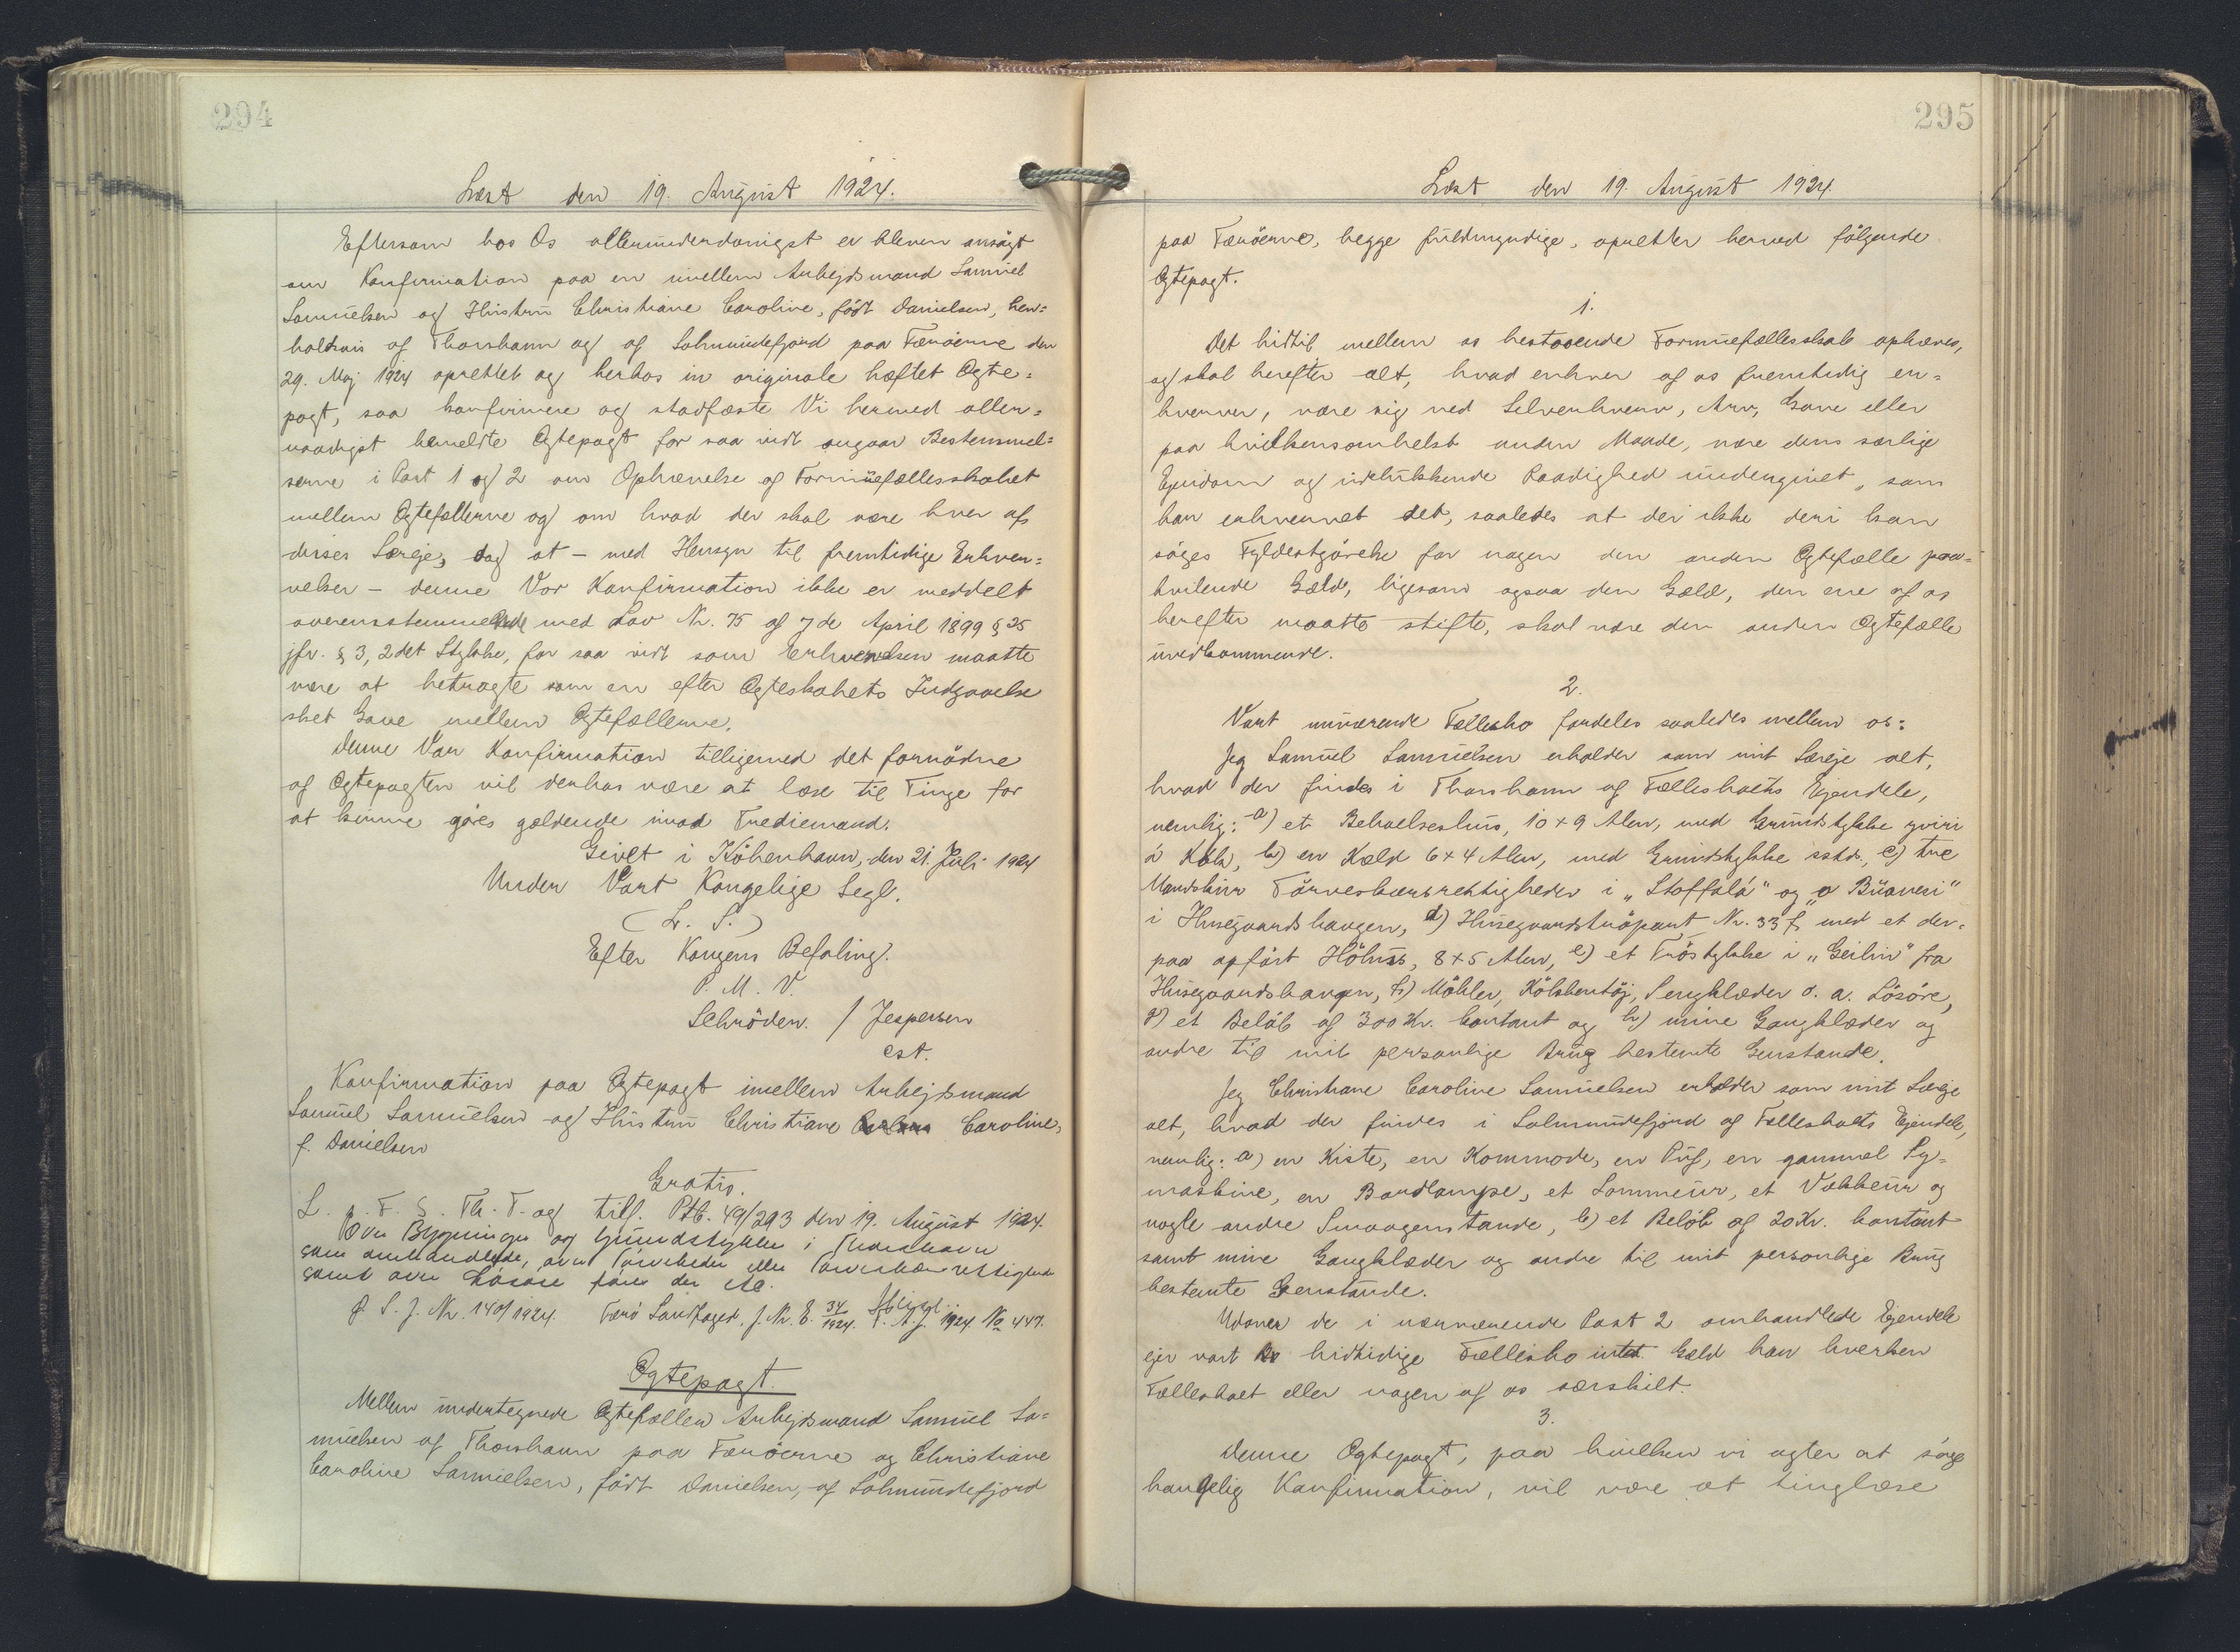 294
Læst den 19. August 1924.
Eftersom hos Os allerunderdanigst er bleven ansøgt
om Konfirmation paa en imellem Arbejdsmand Samuel
Samuelsen og Hustru Christiane Caroline, født Danielsen, hen=
holdsvis af Thorshavn og af Solmundefjord paa Færøerne den
29. Maj 1924 oprettet og herhos in originale hæftet Ægte=
pagt, saa konfirmere og stadfæste Vi hermed aller=
naadigst bemeldte Ægtepagt for saa vidt angaar Bestemmel=
serne i Post 1 og 2 om Ophævelse af Formuefællesskabet
mellem Ægtefællerne og om hvad der skal være hver af
disses Særeje, dog at – med Hensyn til fremtidige Erhver=
velser – denne Vor Konfirmation ikke er meddelt
overensstemmende med Lov Nr. 75 af 7de April 1899 § 25
jfr. § 3, 2det Stykke, for saa vidt som Erhvervelsen maatte
være at betragte som en efter Ægteskabets Indgaaelse
sket Gave mellem Ægtefællerne.
Denne Vor Konfirmation tilligemed det fornødne
af Ægtepagten vil derhos være at læse til Tinge for
at kunne gøres gældende imod Trediemand.
Givet i København, den 21. Juli 1924
Under Vort Kongelige Segl.
(L. S.)
Efter Kongens Befaling.
P. M. V.
Schrøder. / Jespersen
est.
Konfirmation paa Ægtepagt imellem Arbejdsmand
Samuel Samuelsen og Hustru Christiane Caroline,
f. Danielsen
Gratis.
L. p. F. S. Th. T. og tilf. Ptb. 49/293 den 19. August 1924.
Over Bygninger og Grundstykker i Thorshavn
som omhandlede, over Tørveheder eller Tørveskærsrettigheder
samt over Løsøreføres der etc.
F. S. J. Nr. 140/1924. Færø Landfoged. J. Nr. E. 34/1924. 1924 No 447.
Ægtepagt.
Mellem undertegnede Ægtefæller Arbejdsmand Samuel Sa=
muelsen af Thorshavn paa Færøerne og Christiane
Caroline Samuelsen, født Danielsen, af Solmundefjord
295
Læst den 19. August 1924.
paa Færøerne, begge fuldmyndige, opretter herved følgende
Ægtepagt.
1.
Det hidtil mellem os bestaaende Formuefællesskab ophæves,
og skal herefter alt, hvad enhver af os fremtidig er=
hverver, være sig ved Selverhverv, Arv, Gave eller
paa hvilkensomhelst anden Maade, være dens særlige
Ejendom og udelukkende Raadighed undergivet, som
har erhvervet det, saaledes at der ikke deri kan
søges Fyldestgørelse for nogen den anden Ægtefælle paa=
hvilende Gæld, ligesom ogsaa den Gæld, den ene af os
herefter maatte stifte, skal være den anden Ægtefælle
uvedkommende.
2.
Vort nuværende Fællesbo fordeles saaledes mellem os:
Jeg Samuel Samuelsen erholder som mit Særeje alt,
hvad der findes i Thorshavn af Fællesboets Ejendele,
nemlig: a) et Beboelseshus, 10 x 9 Alen, med Grundstykke yviri
á Hól, b) en Kæld 6 x 4 Alen, med Grundstykke sstds., c) tre
Tørveskærsrettigheder i „Stoffalá" og
i Husegaardshaugen, d) Husegaardstrøpart Nr. 33 f. med et der=
paa opført Høhus, 8 x 5 Alen, e) et Trøstykke i „Geilin" fra
Husegaardshaugen, f) Møbler, Køkkentøj, Sengklæder o. a. Løsøre,
g) et Beløb af 300 Kr. kontant og h) mine Gangklæder og
andre til mit personlige Brug bestemte Genstande.
Jeg Christiane Caroline Samuelsen erholder som mit Særeje
alt, hvad der findes i Solmundefjord af Fællesboets Ejendele,
nemlig: a) en Kiste, en Kommode, en Puf, en gammel Sy=
maskine, en Bordlampe, et Lommeur, et Vækkeur og
nogle andre Smaagenstande, b) et Beløb af 20 Kr. kontant
samt mine Gangklæder og andre til mit personlige Brug
bestemte Genstande.
Udover de i nærværende Post 2 omhandlede Ejendele
ejer vort hidtidige Fællesbo intet. Gæld har hverken
Fællesboet eller nogen af os særskilt.
3.
Denne Ægtepagt, paa hvilken vi agter at søge
kongelig Konfirmation, vil være at tinglæse